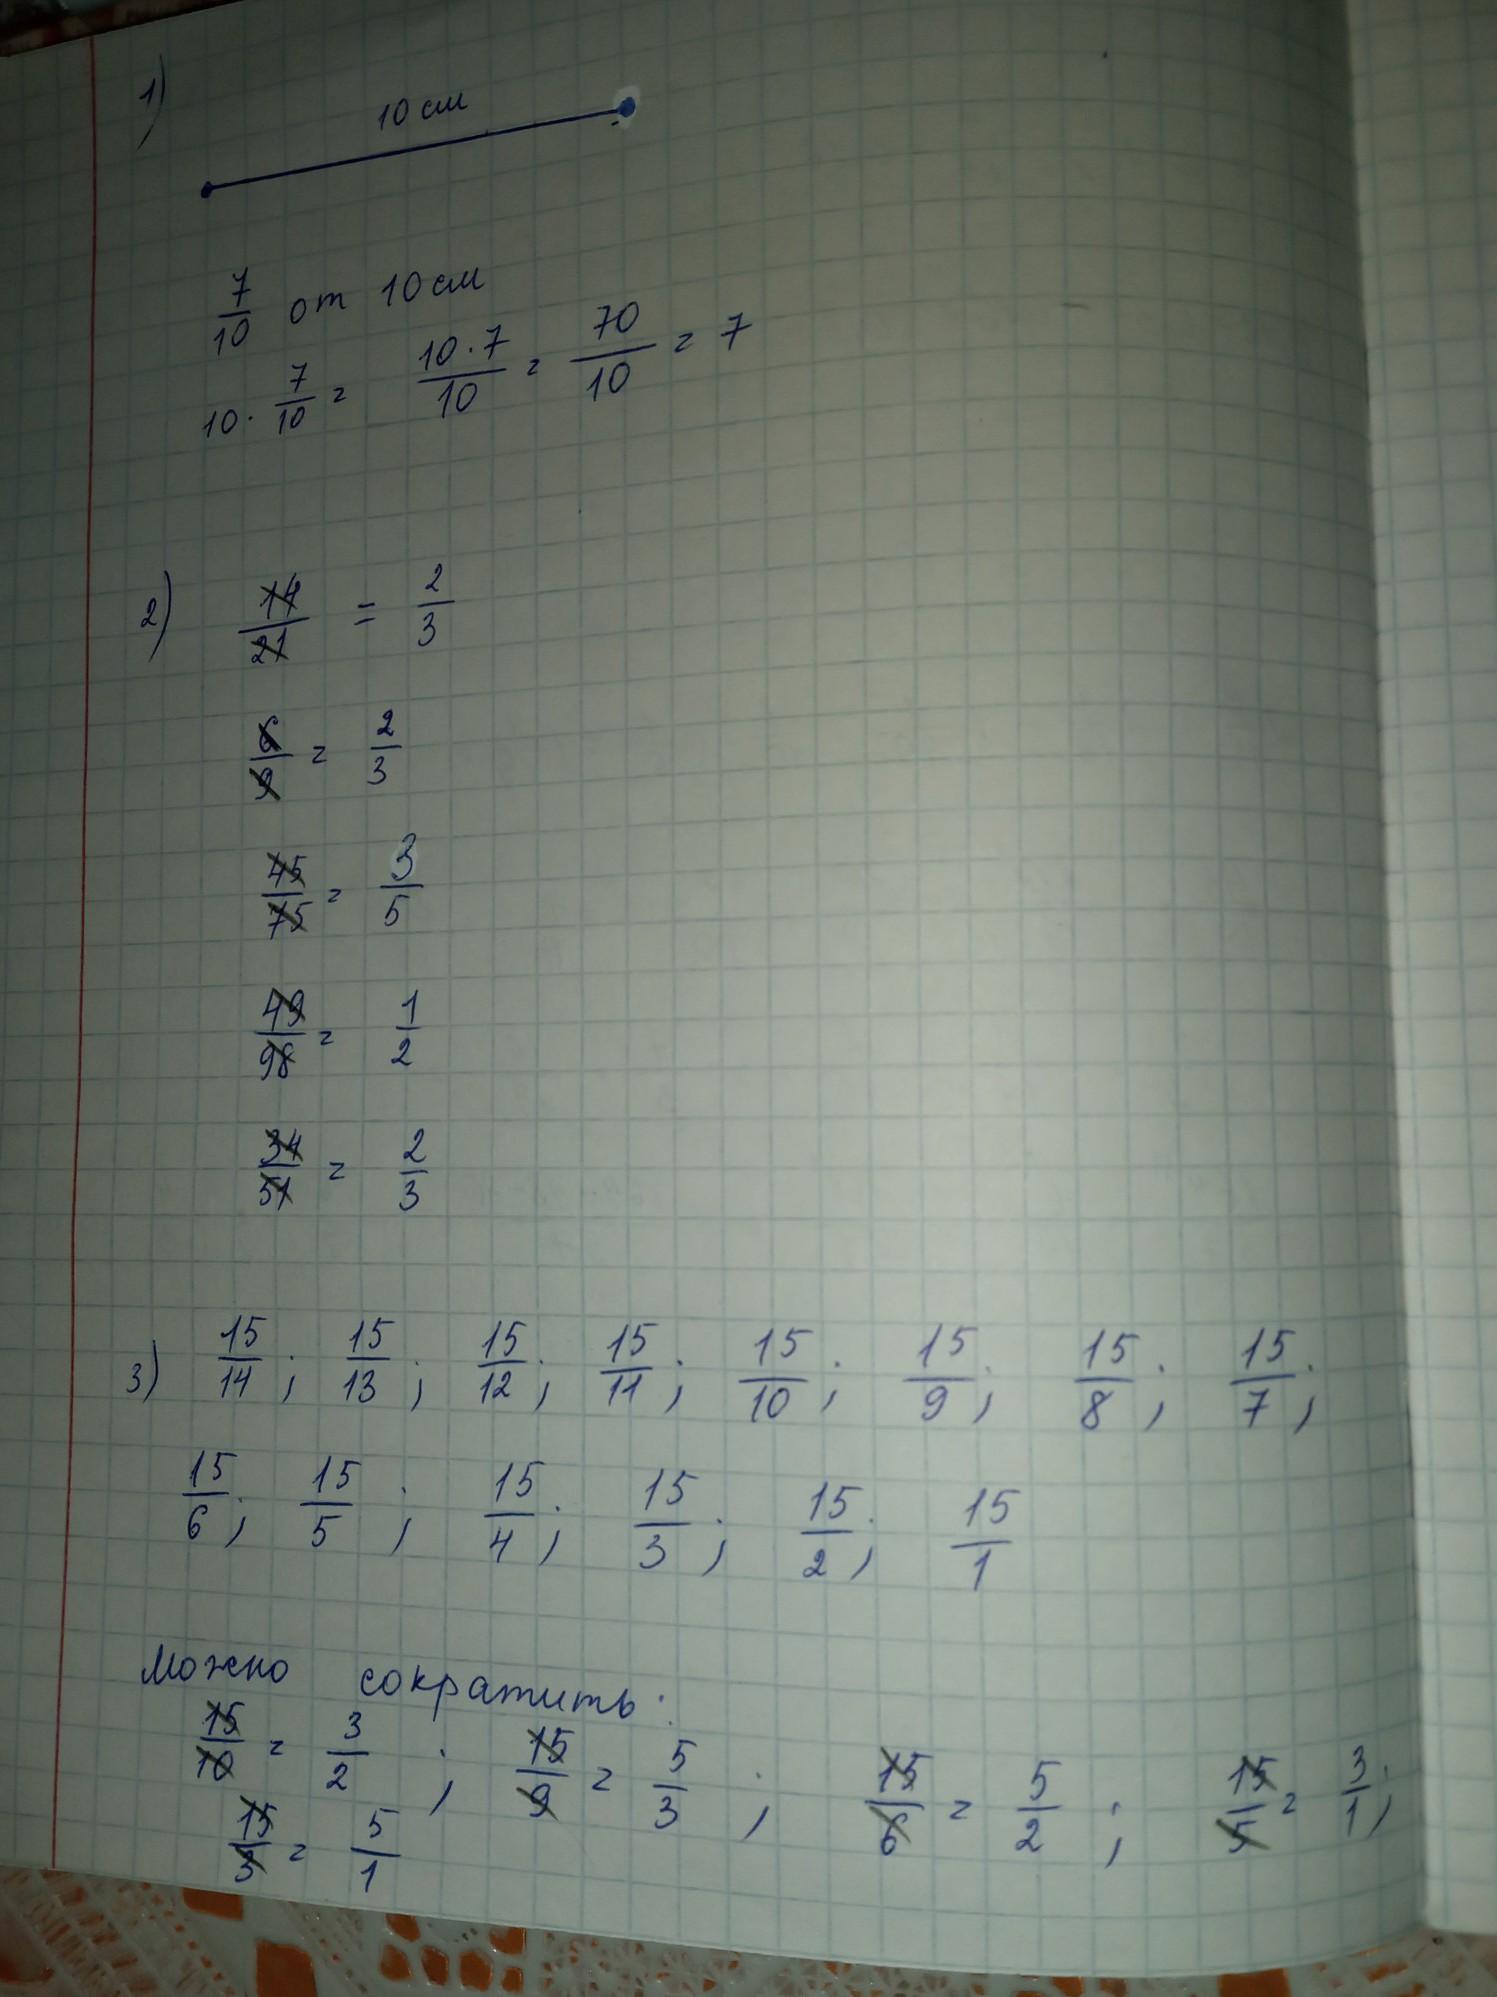 1)
10 см
7/10 от 10 см
10 · 7/10 = 10·7/10 = 70/10 = 7
2) 14/21 = 2/3
6/9 = 2/3
45/75 = 3/5
49/98 = 1/2
34/51 = 2/3
3) 15/14; 15/13; 15/12; 15/11; 15/10; 15/9; 15/8; 15/7;
15/6; 15/5; 15/4; 15/3; 15/2; 15/1
Можно сократить:
15/10 = 3/2; 15/9 = 5/3; 15/6 = 5/2; 15/5 = 3/1;
15/3 = 5/1